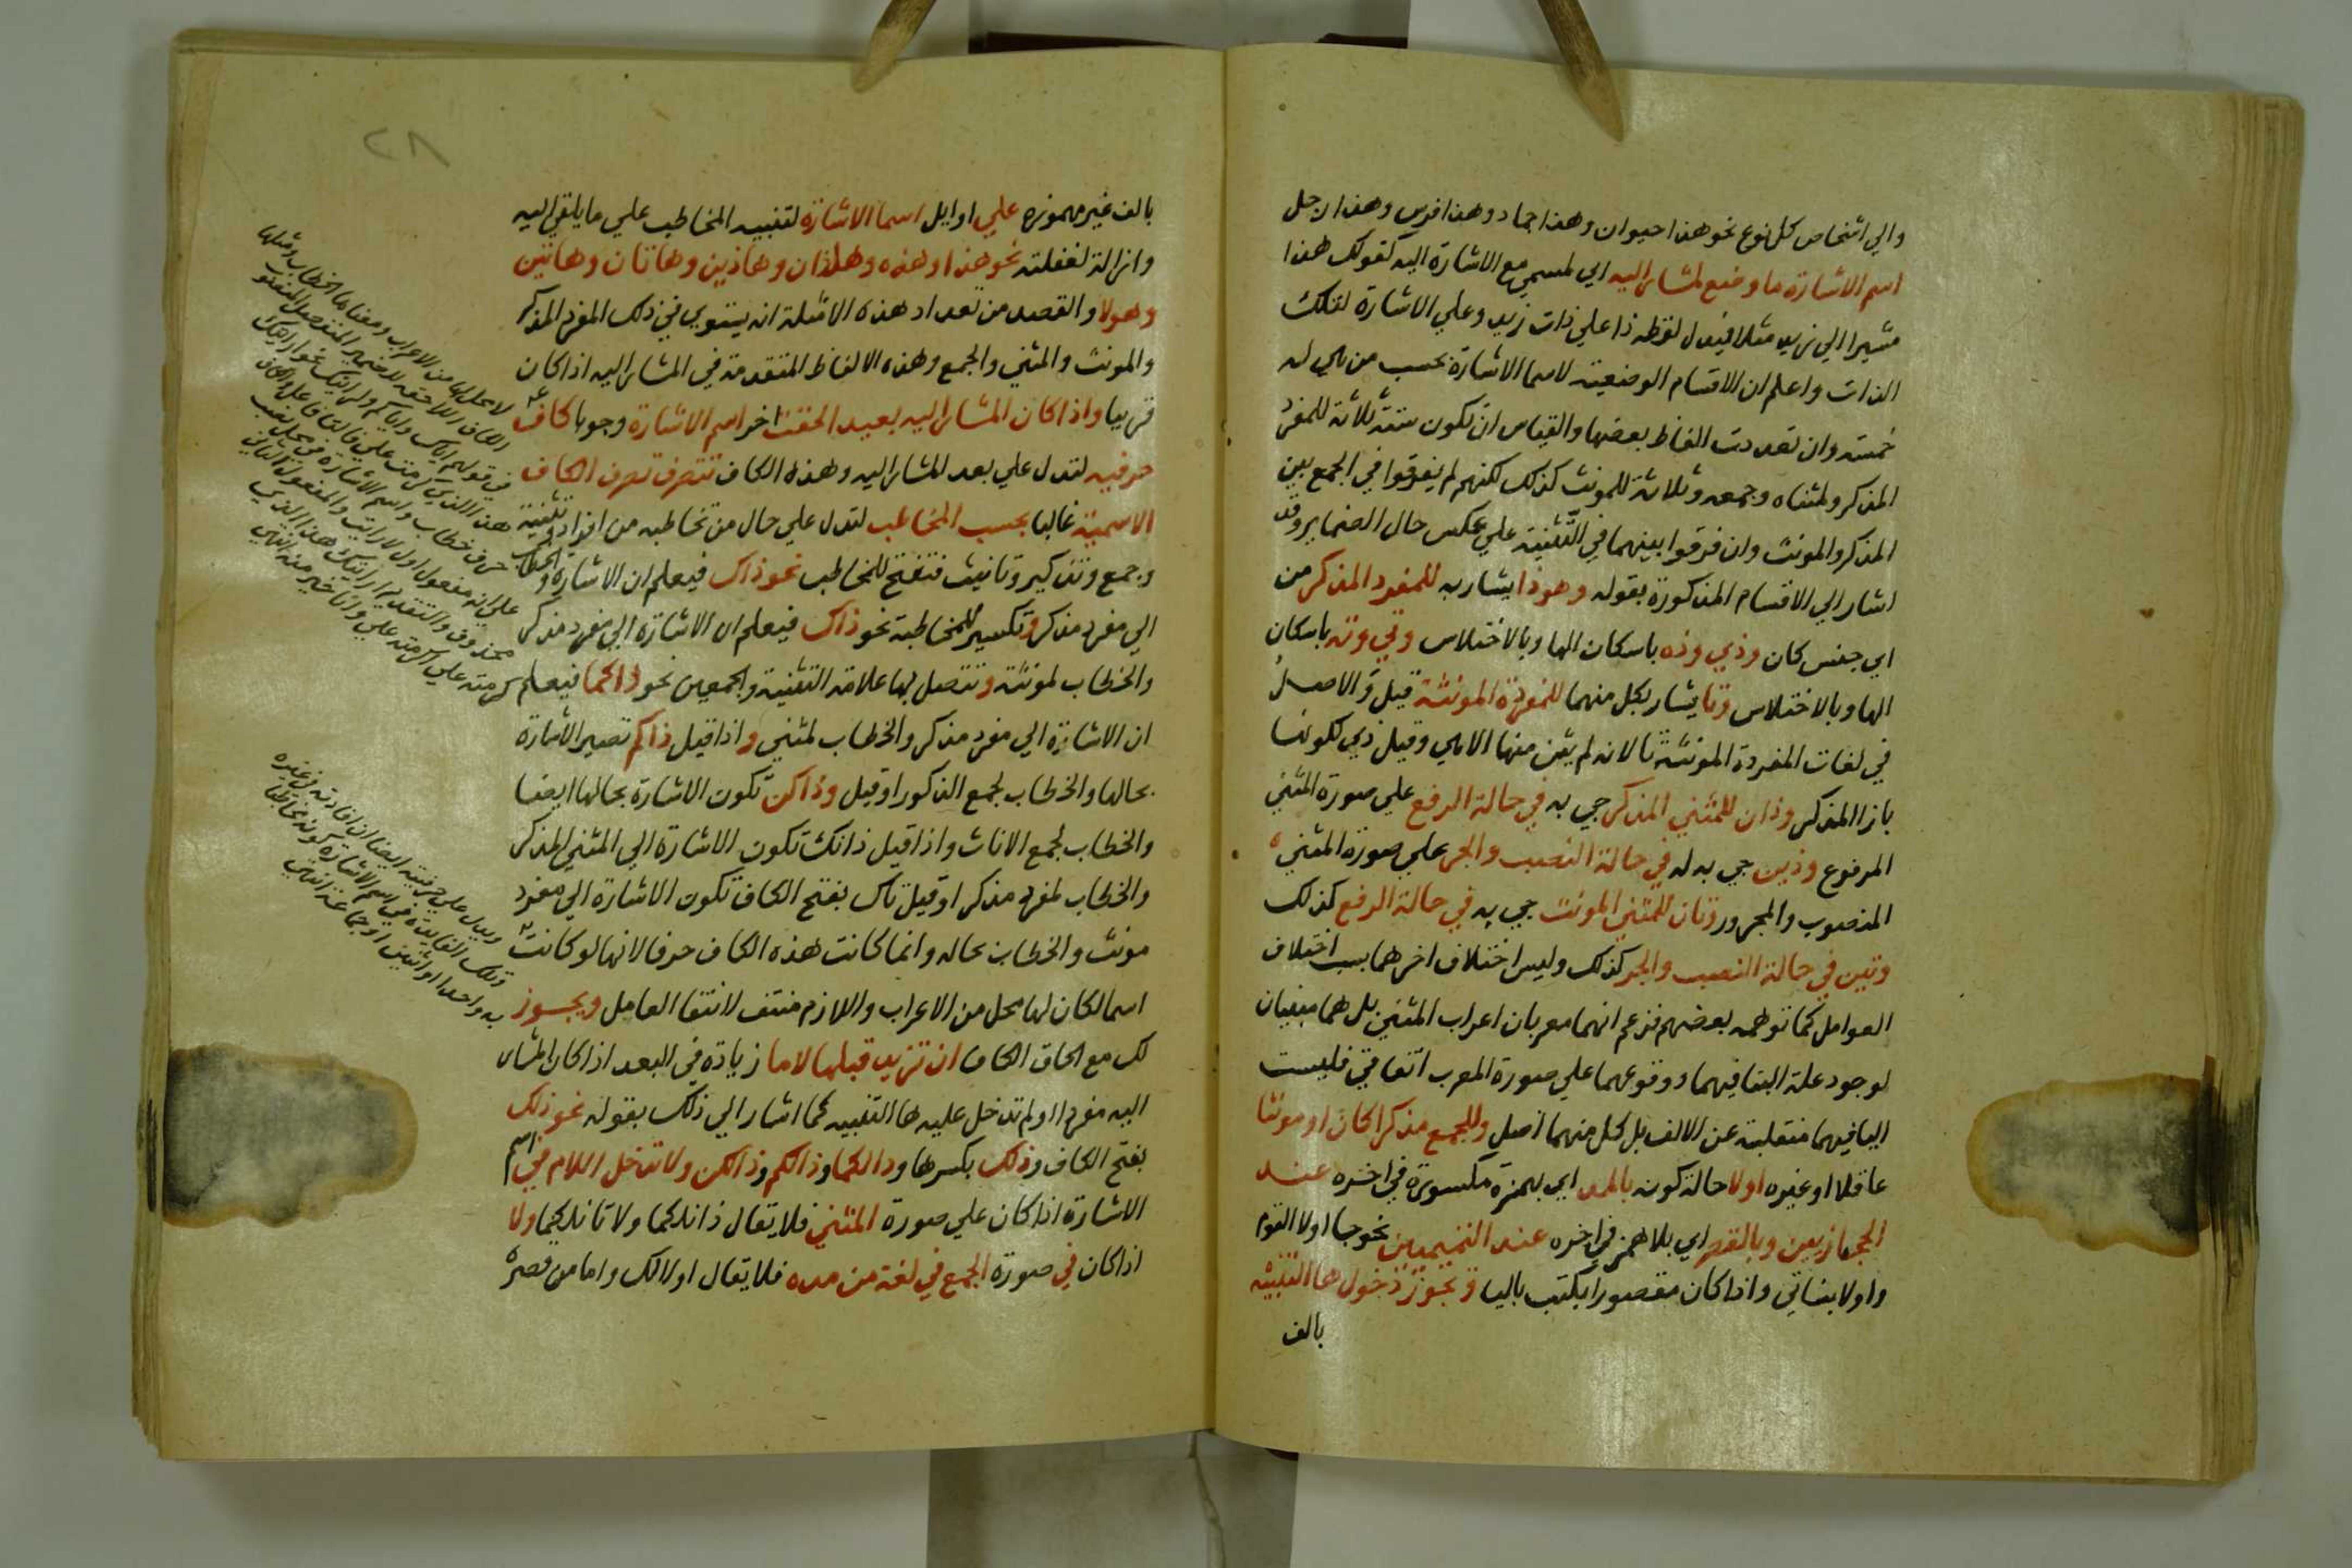 والي اشخاص كل نوع نحو هذا حيوان وهذا جماد وهذا فرس وهذا رجل
اسم الاشارة ما وضع لمشار اليه اي لمسمي مع الاشارة اليه كقولك هذا
مشيرا الي زيد مثلا فيدل لفظه ذا علي ذات زيد وعلي الاشارة لتلك
الذات واعلم ان الاقسام الوضعية لاسما الاشارة بحسب من هي له
خمسة وان تعددت الفاظ بعضها والقياس ان تكون ستة ثلاثة للمفرد
المذكر ولمثناه وجمعه وثلاثة للمونث كذلك لكنهم لم يفرقوا في الجمع بين
المذكر والمونث وان فرقوا بينهما في التثنية علي عكس حال الضماير وقد
اشار الي الاقسام المذكورة بقوله وهو ذا يشار به للمفرد المذكر من
اي جنس كان وذي وذه باسكان الها وبالاختلاس وتي وته باسكان
الها وبالاختلاس وتا يشار بكل منهما للمفردة المونثة قيل والاصل
في لغات المفردة المونثة تا لانه لم يثن منها الا هي وقيل ذي لكونها
بازا المذكر وذان للمثني المذكر جي به في حالة الرفع علي صورة المثني
المرفوع وذين جي به له في حالة النصب والجر علي صورة المثني
المنصوب والمجرور وتان للمثني المونث جي به في حالة الرفع كذلك
وتين في حالة النصب والجر كذلك وليس اختلاف اخرهما بسبب اختلاف
العوامل كما توهمه بعضهم فزعم انهما معربان اعراب المثني بل هما مبنيان
لوجود علة البنا فيهما ووقوعهما علي صورة المعرب اتفاقي فليست
اليا فيهما منقلبة عن الالف بل كل منهما اصل وللجمع مذكرا كان او مونثا
عاقلا او غيره اولا حالة كونه بالمد اي بهمزة مكسورة في اخره عند
الحجازيين وبالقصر اي بلا همز في اخره عند التميميين نحو جا اولا القوم
واولا بناتي واذا كان مقصورا يكتب باليا ويجوز دخول ها التنبيه
بالف
بالف غير مهموزه علي اوايل اسما الاشارة لتنبيه المخاطب علي ما يلقي اليه
وازالة لغفلته نحو هذا وهذه وهذان وهاذين وهاتان وهاتين
وهولا والقصد من تعداد هذه الامثلة انه يستوي في ذلك المفرد المذكر
والمونث والمثني والجمع وهذه الالفاظ المتقدمة في المشار اليه اذا كان
قريبا واذا كان المشار اليه بعيد الحقت اخر اسم الاشارة وجوبا كاف
حرفيه لتدل علي بعد المشار اليه وهذه الكاف تتصرف تصرف الكاف
الاسمية غالبا بحسب المخاطب لتدل علي حال من تخاطبه من افراد وتثنية
وجمع وتذكير وتانيث فتفتح للمخاطب نحو ذاك فيعلم ان الاشارة والخطاب
الي مفرد مذكر وتكسر للمخاطبة نحو ذاك فيعلم ان الاشارة الي مفرد مذكر
والخطاب لمونثة وتتصل بها علامة التثنية والجمعين نحو ذاكما فيعلم
ان الاشارة الي مفرد مذكر والخطاب لمثني واذا قيل ذاكم تصير الاشارة
بحالها والخطاب لجمع الذكور او قيل وذاكن تكون الاشارة بحالها ايضا
والخطاب لجمع الاناث واذا قيل ذانك تكون الاشارة الي المثني المذكر
والخطاب لمفرد مذكر او قيل تاك بفتح الكاف تكون الاشارة الي مفرد
مونث والخطاب بحاله وانما كانت هذه الكاف حرفا لانها لو كانت
اسما لكان لها محل من الاعراب واللازم منتف لانتفا العامل ويجوز
لك مع الحاق الكاف ان تزيد قبلها لاما زيادة في البعد اذا كان المشار
اليه مفردا ولم تدخل عليه ها التنبيه كما اشار الي ذلك بقوله نحو ذلك
بفتح الكاف وذلك بكسرها وذالكما وذالكم وذالكن ولا تدخل اللام في اسم
الاشارة اذا كان علي صورة المثني فلا يقال ذانلكما ولا تانلكما ولا
اذا كان في صورة الجمع في لغة من مده فلا يقال اولالك واما من قصره
لا محل لها من الاعراب ومعناها الخطاب ومثلها
الكاف اللاحقة للضمير المنفصل المنصوب
في قولهم اياك واياكم
هذا الذي كرمت علي
حرف خطاب واسم الاشارة في محل نصب
علي انه مفعول اول لارايت والمفعول الثاني
محذوف والتقدير ارايتك هذا الذي
كرمته علي لم كرمته علي وانا خير منه انتهي
ويدل علي حرفيته ايضا ان
وتلك الفايدة في اسم الاشارة كونه مخاطبا
به واحدا او اثنين او جماعة انتهي
٢٨